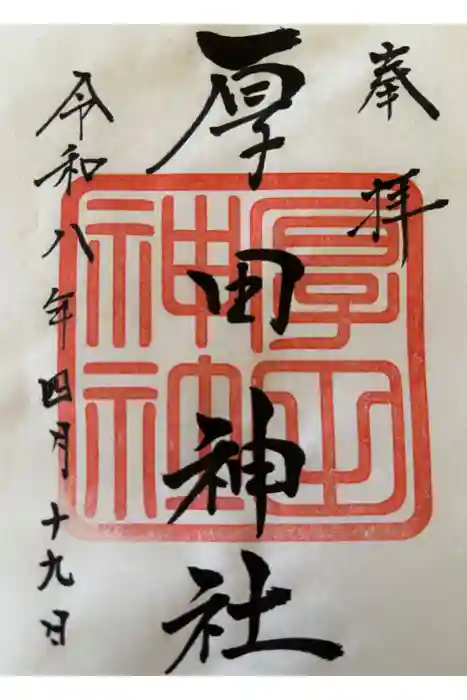 奉拝
厚田神社
厚田神社
令和八年四月十九日